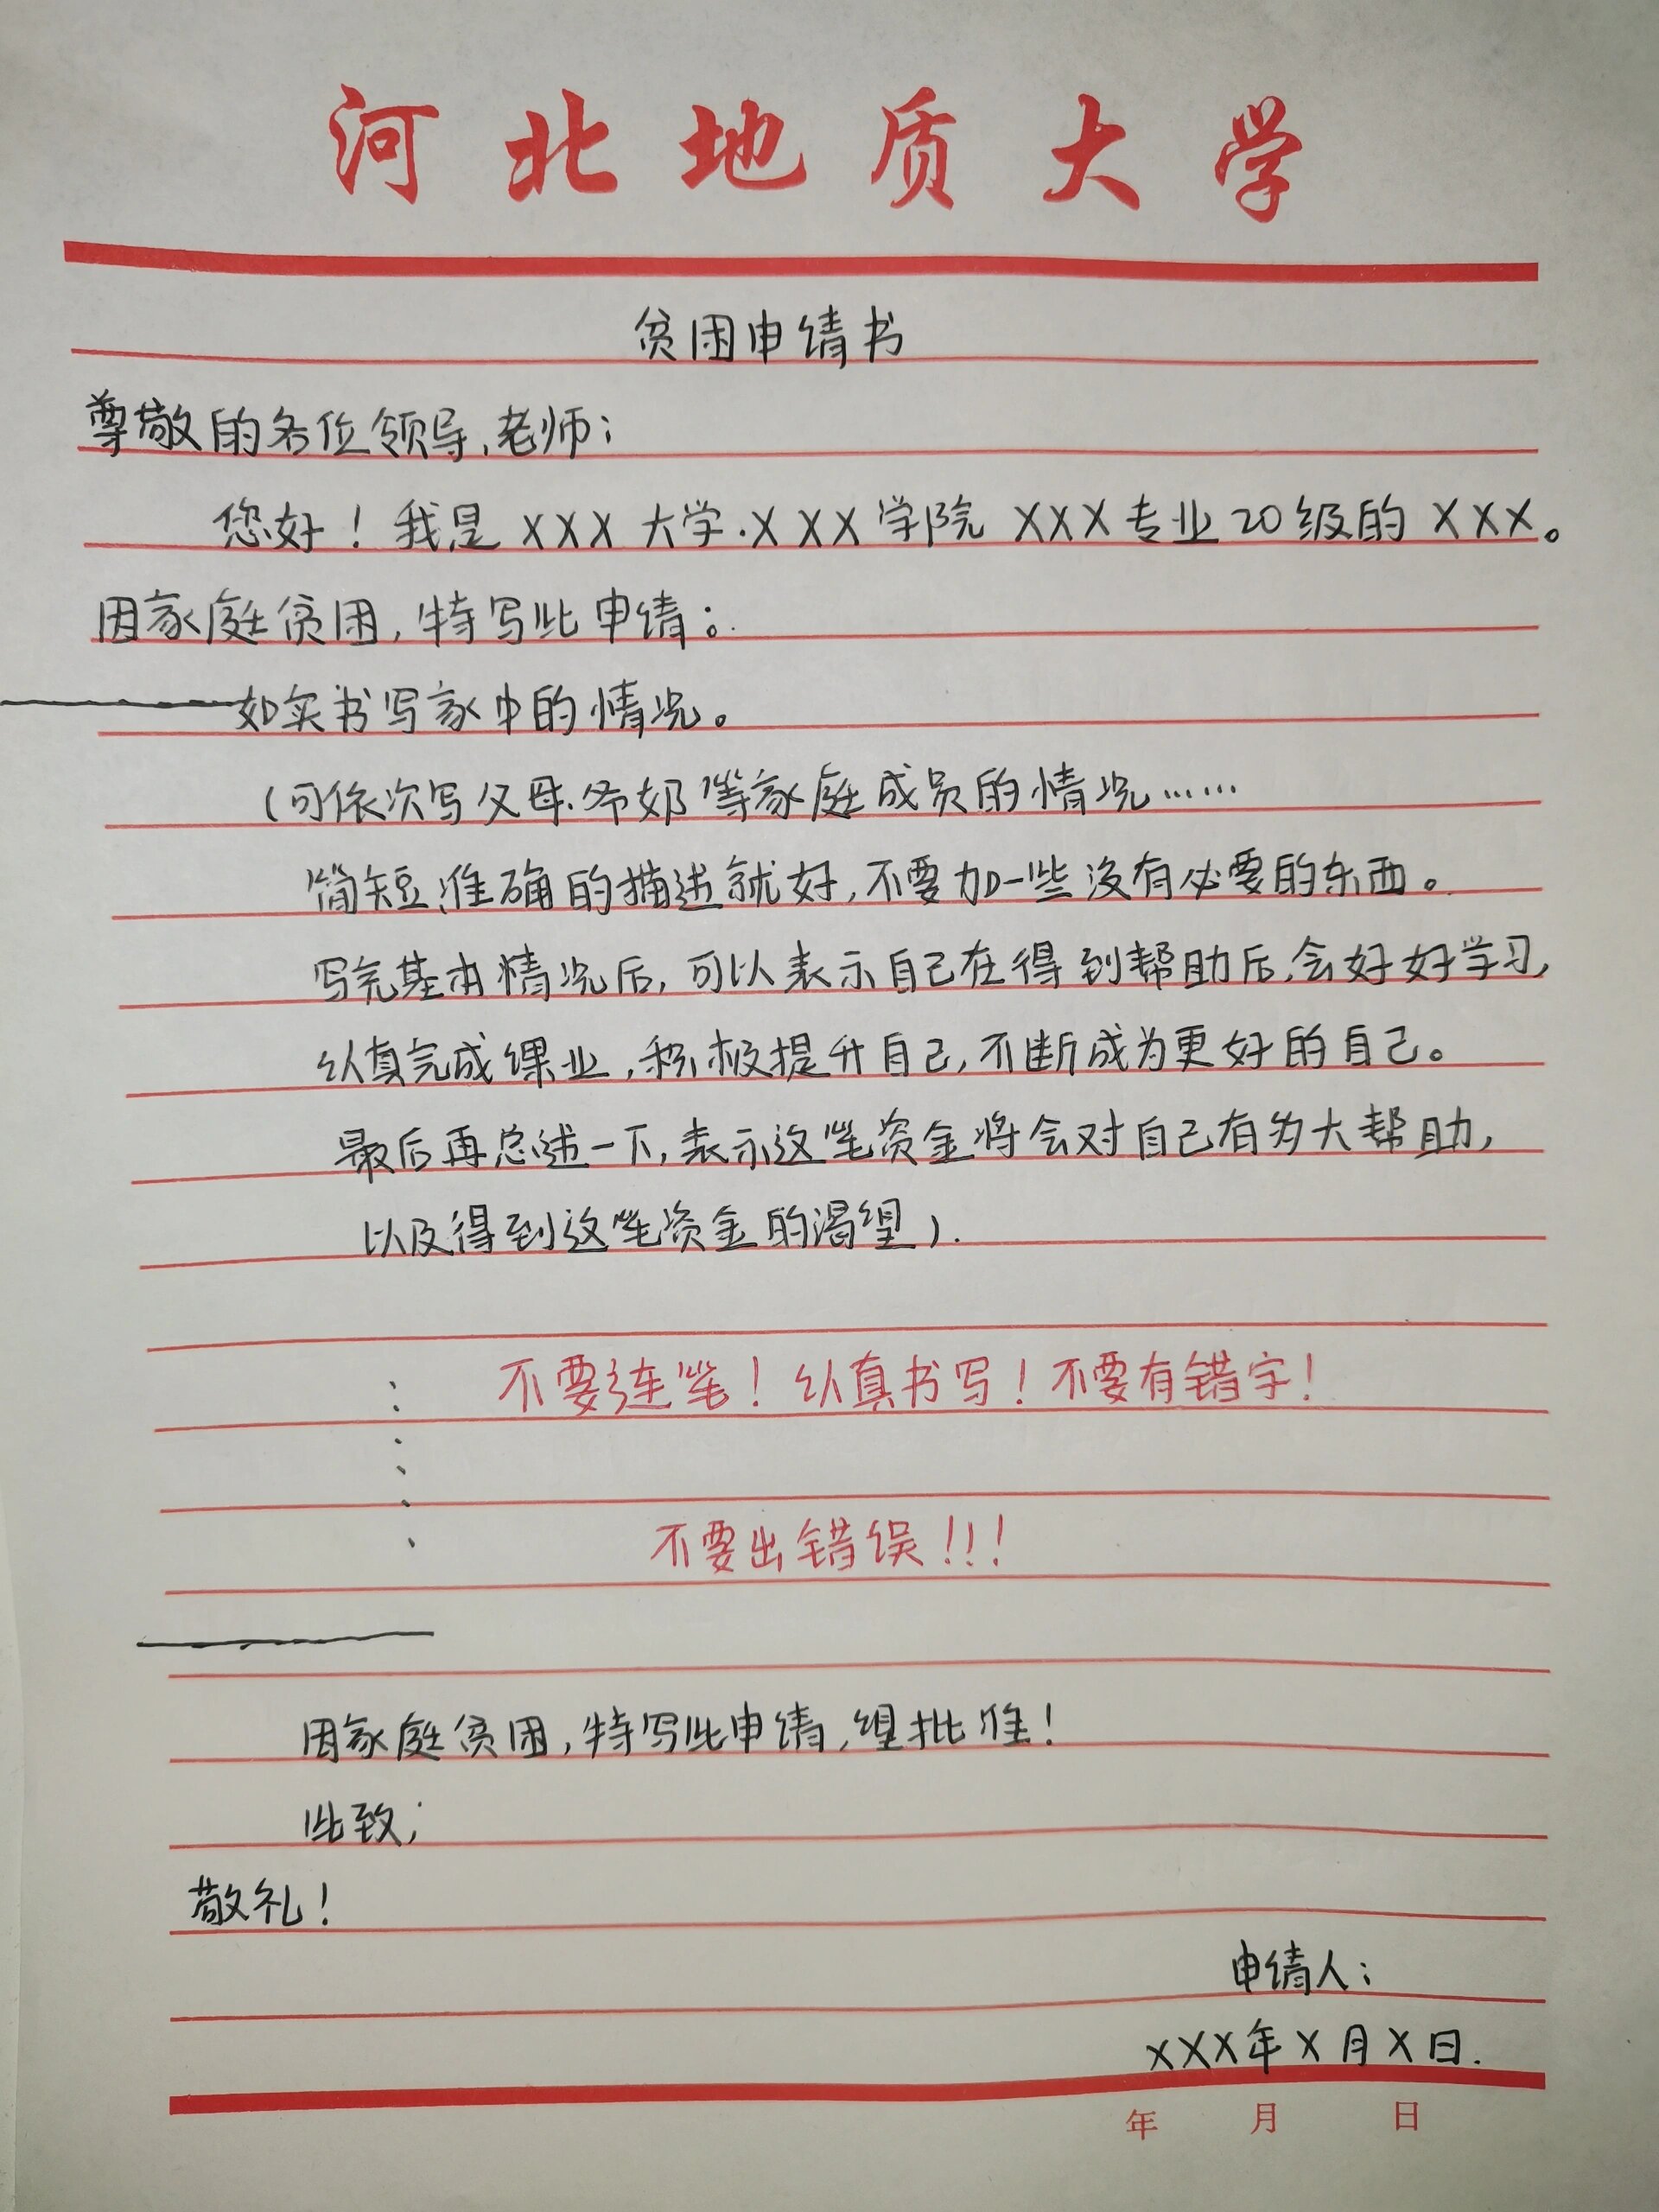 河北地质大学
贫困申请书
尊敬的各位领导、老师：
您好！我是XXX大学.XXX学院XXX专业20级的XXX。
因家庭贫困，特写此申请：
如实书写家中的情况。
（可依次写父母.爷奶等家庭成员的情况……
简短准确的描述就好，不要加一些没有必要的东西。
写完基本情况后，可以表示自己在得到帮助后，会好好学习，
认真完成课业，积极提升自己，不断成为更好的自己。
最后再总述一下，表示这笔资金将会对自己有多大帮助，
以及得到这笔资金的渴望）.
不要连笔！认真书写！不要有错字！
不要出错误！！！
因家庭贫困，特写此申请，望批准！
此致；
敬礼！
申请人：
XXX年X月X日.
年 月 日